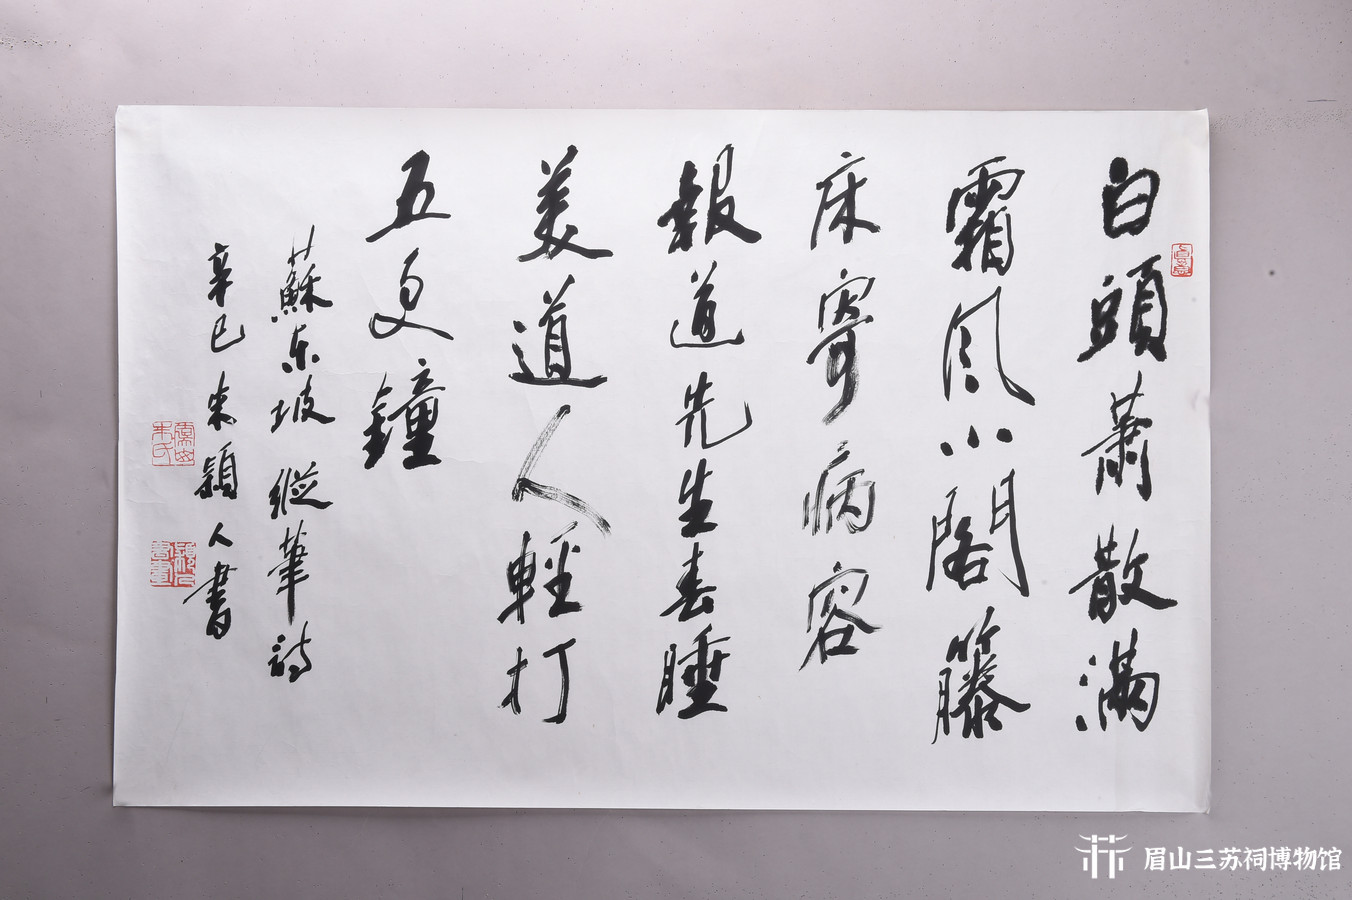 白頭蕭散滿
霜风小閣籐
床寄病容
報道先生春睡
美道人輕打
五更鐘
蘇东坡縱筆詩
辛巳朱穎人書
朱氏
穎人書畫
眉山三苏祠博物馆